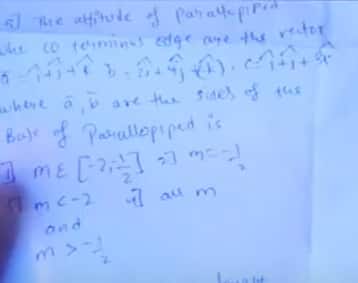 5] The altitude of parallopiped
the co terminus edge are the vector
a = i + j + k b = 2i + 4j
where a̅, b̅ are the sides of the
Base of Parallopiped is
1] m ∈ [-2, -1/2] 2] m = -1/2
m < -2 4] all m
and
m > -1/2